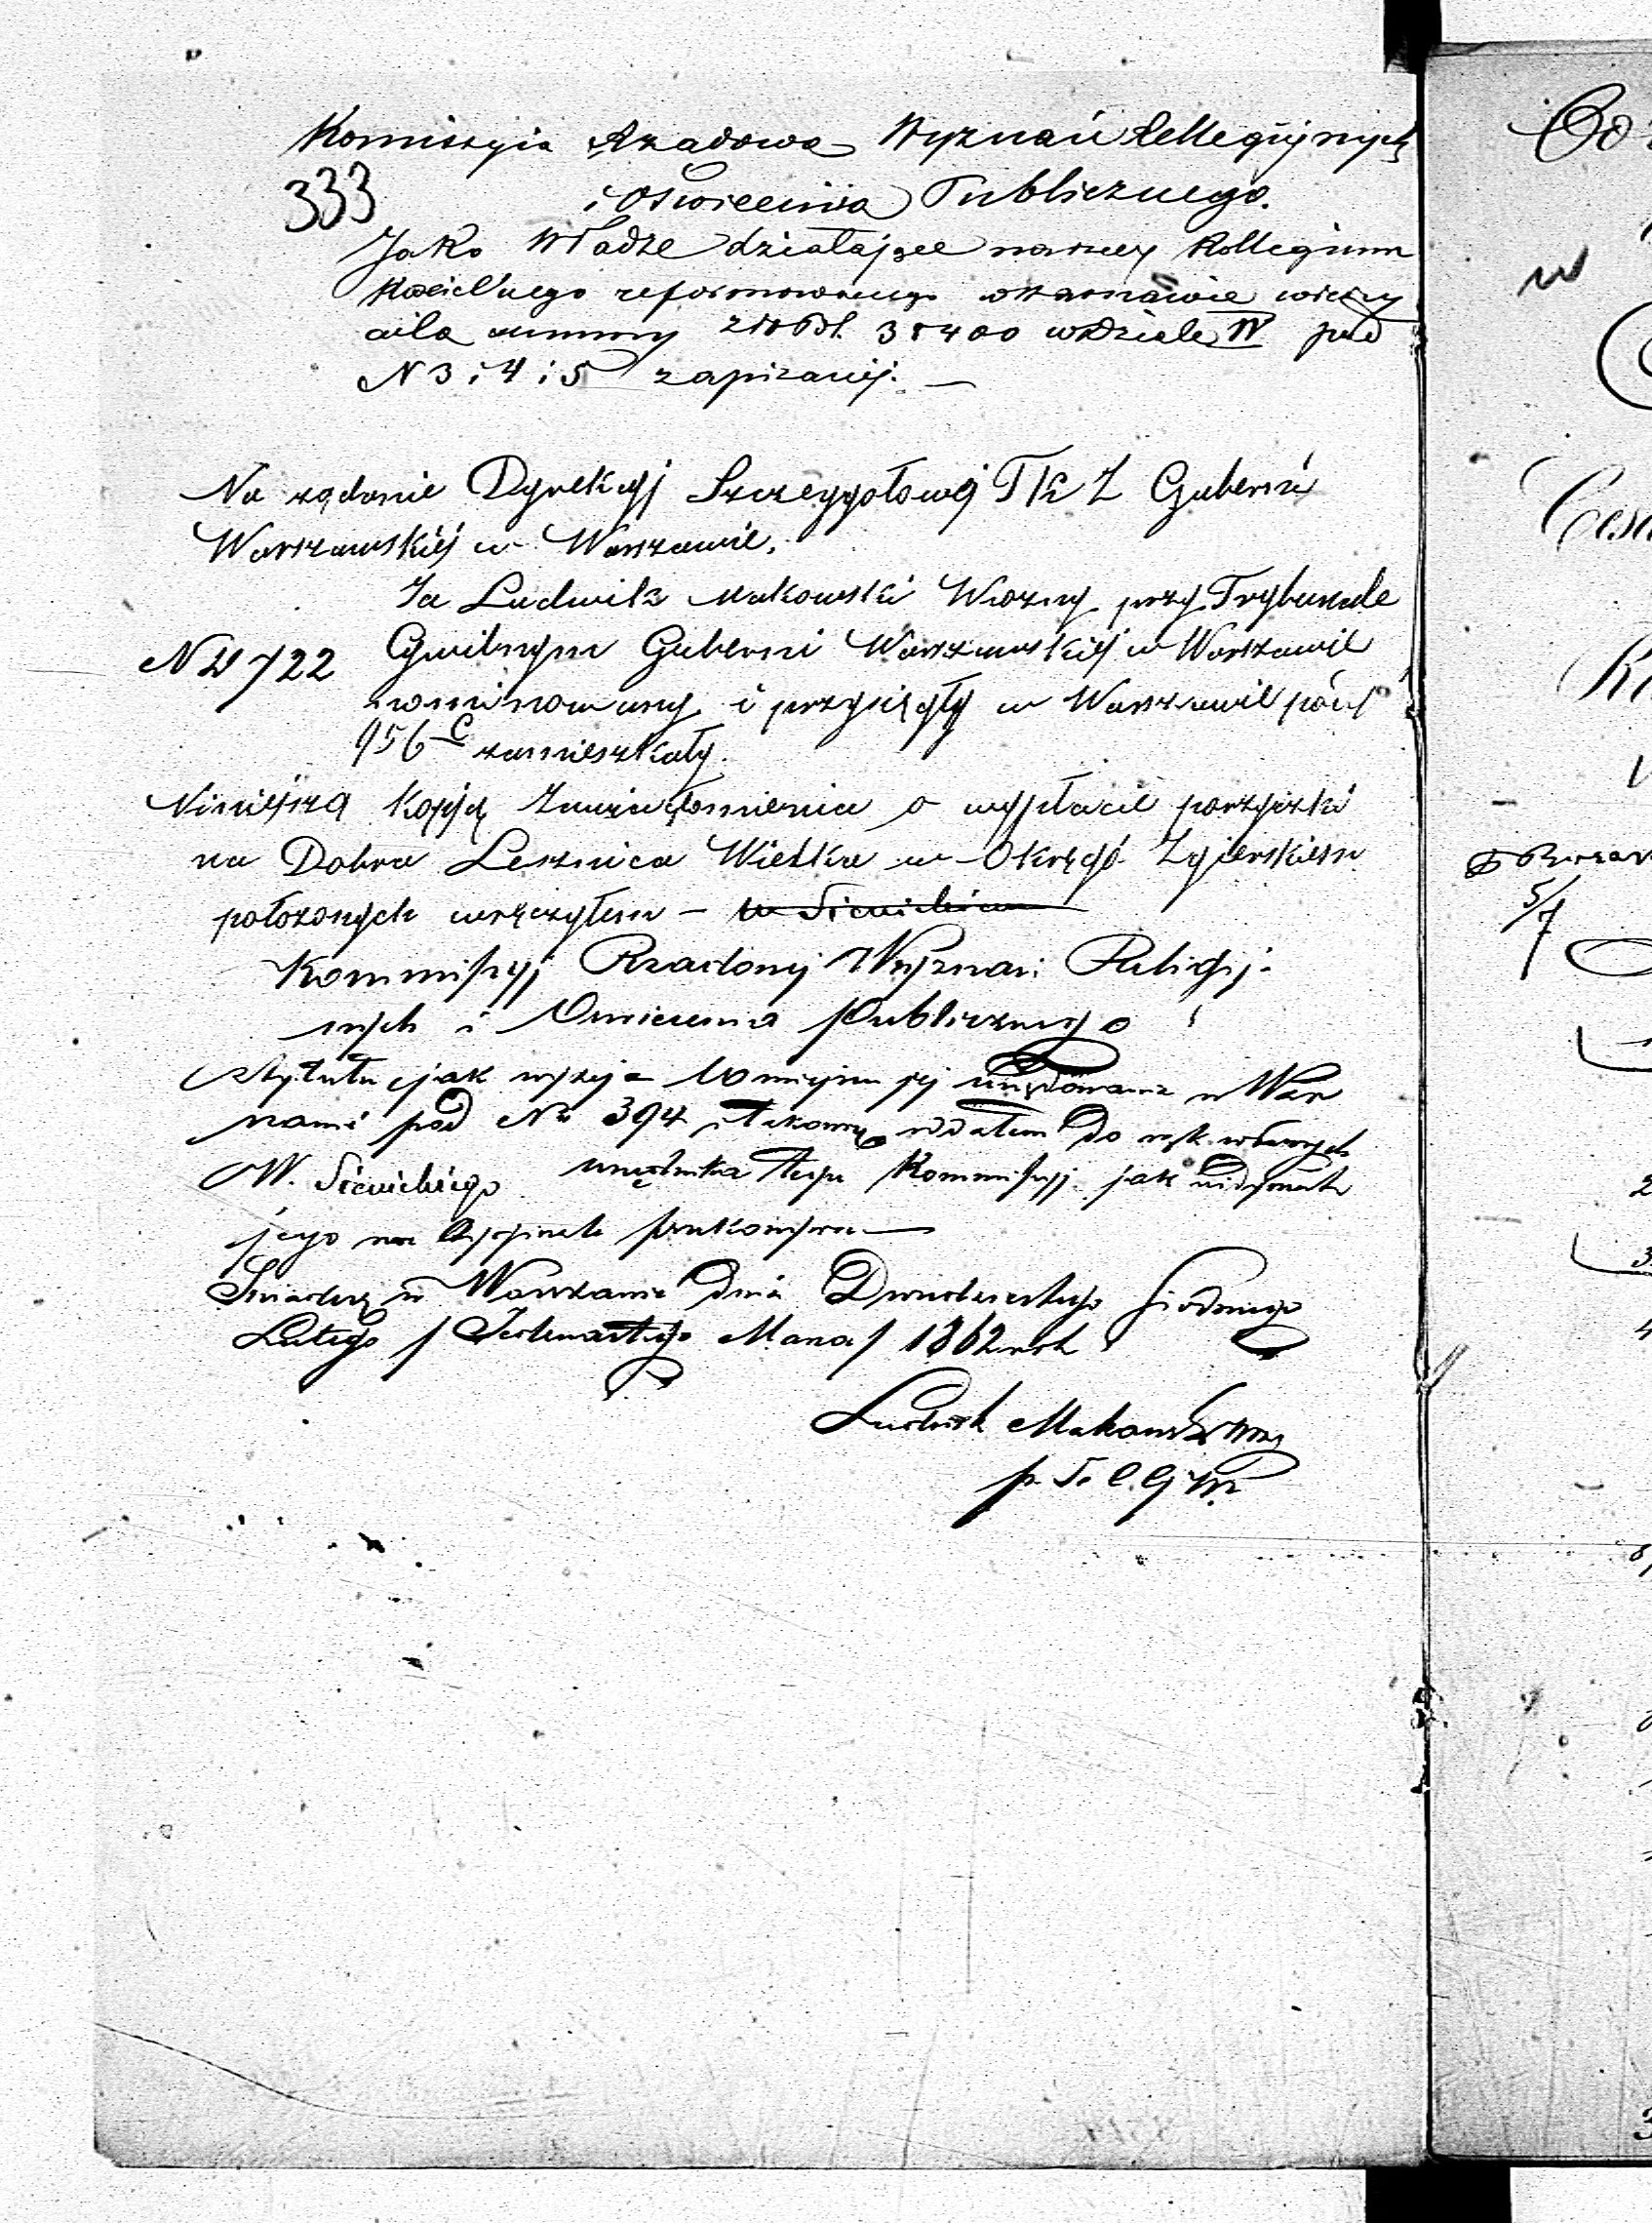 Komissyia Rządowa Wyznań Relleginych
333
i Oświecenia Publicznego.
Jako Władze działające na rzecz Kollegium
Kościelnego reformowanego w Warszawie wierzy
ciela summy złp 38400 w dziale IV pod
N 3 i 4 i 5 zapisanej. —
Na rządanie Dyrekcyj Szczegółowej T K Z Guberni
Warszawskiéj w Warszawie.
Ja Ludwik Makowski Woźny przy Trybunale
N 722
Cywilnym Guberni Warszawskiéj w Warszawie
nominowany i przysięgły w Warszawie pod
956 C zamieszkały.
Niniejszą Kopją Zawiadomienia o wypłacie pożyczki
na Dobra Leśznica Wielka w Okręgó Zgierskiem
położonych wręczyłem — w Sienickiem
Kommissyj Rządowej Wyznań Religij-
nych i Oswiecenia Publicznego
z tytułu jak wyżej w miejscu jej urzędowania w War
szawie pod Nr 394 i takową oddałem do rąk własnych
W. Sienickiego urzędnika tejże Kommissyj jak
jego na oryginale
Świadczę w Warszawie dnia Dwudziestego Siodmego
Lutego / Jedenastego Marca / 1862 rok
Ludwik Makowski Woźny
p. T. C. G. W.
Ces
w
5/7
2
3
4
3